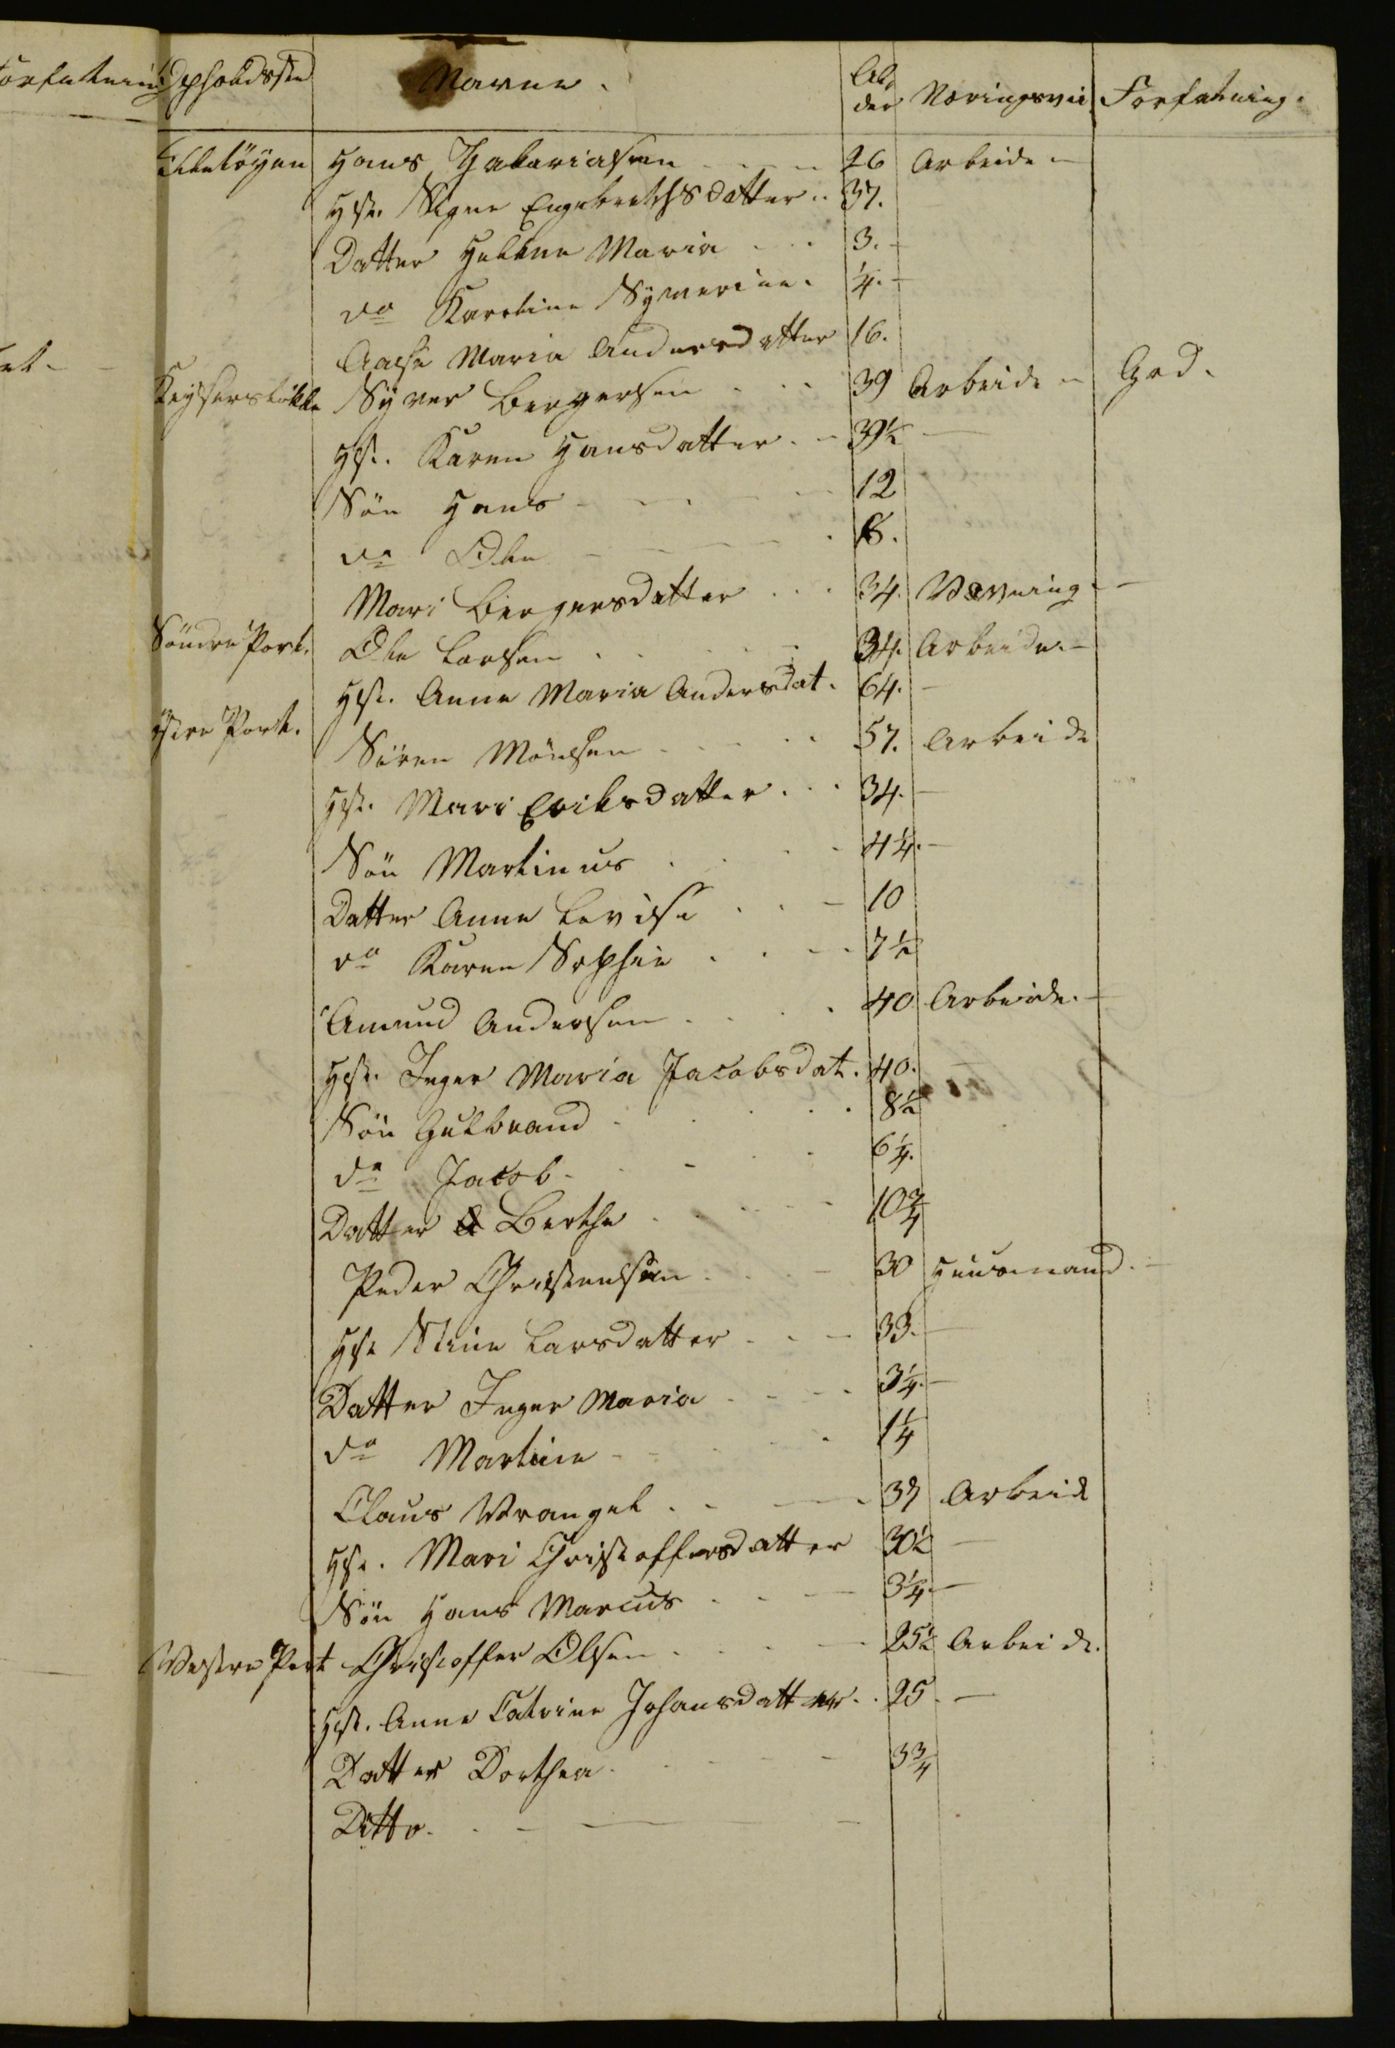 Opholdssted Navne. Alder Næringsvei Forfatning.
Lilletøyen Hans Zakariasen 26 Arbeide
Hst. Signe Engebrethsdatter 37.
Datter Hellene Maria 3.
do Karoline Syverine. ¼.
Aase Maria Andersdatter 16.
Keyserløkke Syver Bergersen 39 Arbeide God.
Hst. Karen Hansdatter 39½
Søn Hans 12
do Ole 8.
Mari Bergersdatter 34 Vævning.
Søndre Port. Ole Larsen 34. Arbeide.
Hst. Anne Maria Andersdat. 64.
Østre Port. Sören Mönsen 57. Arbeide
Hst. Mari Eriksdatter 34.
Søn Martinus 4¼.
Datter Anne Lovise 10
do Karen Sophie 7½
Amund Andersen 40 Arbeide.
Hst. Inger Maria Jacobsdat. 40.
Søn Gulbrand 8½
do Jacob 6¼.
Datter Berthe 10¾
Peder Christensen 30 Huusmand.
Hst Stine Larsdatter 33.
Datter Inger Maria 3¼.
do Martine 1¼
Claus Wrangel 37 Arbeide
Hst. Mari Christoffersdatter 30½
Søn Hans Marcus 3¼.
Vestre Port Christoffer Olsen 25½ Arbeide.
Hst. Anne Catrine Johansdatter 25.
Datter Dorthea 3¾
Ditto.